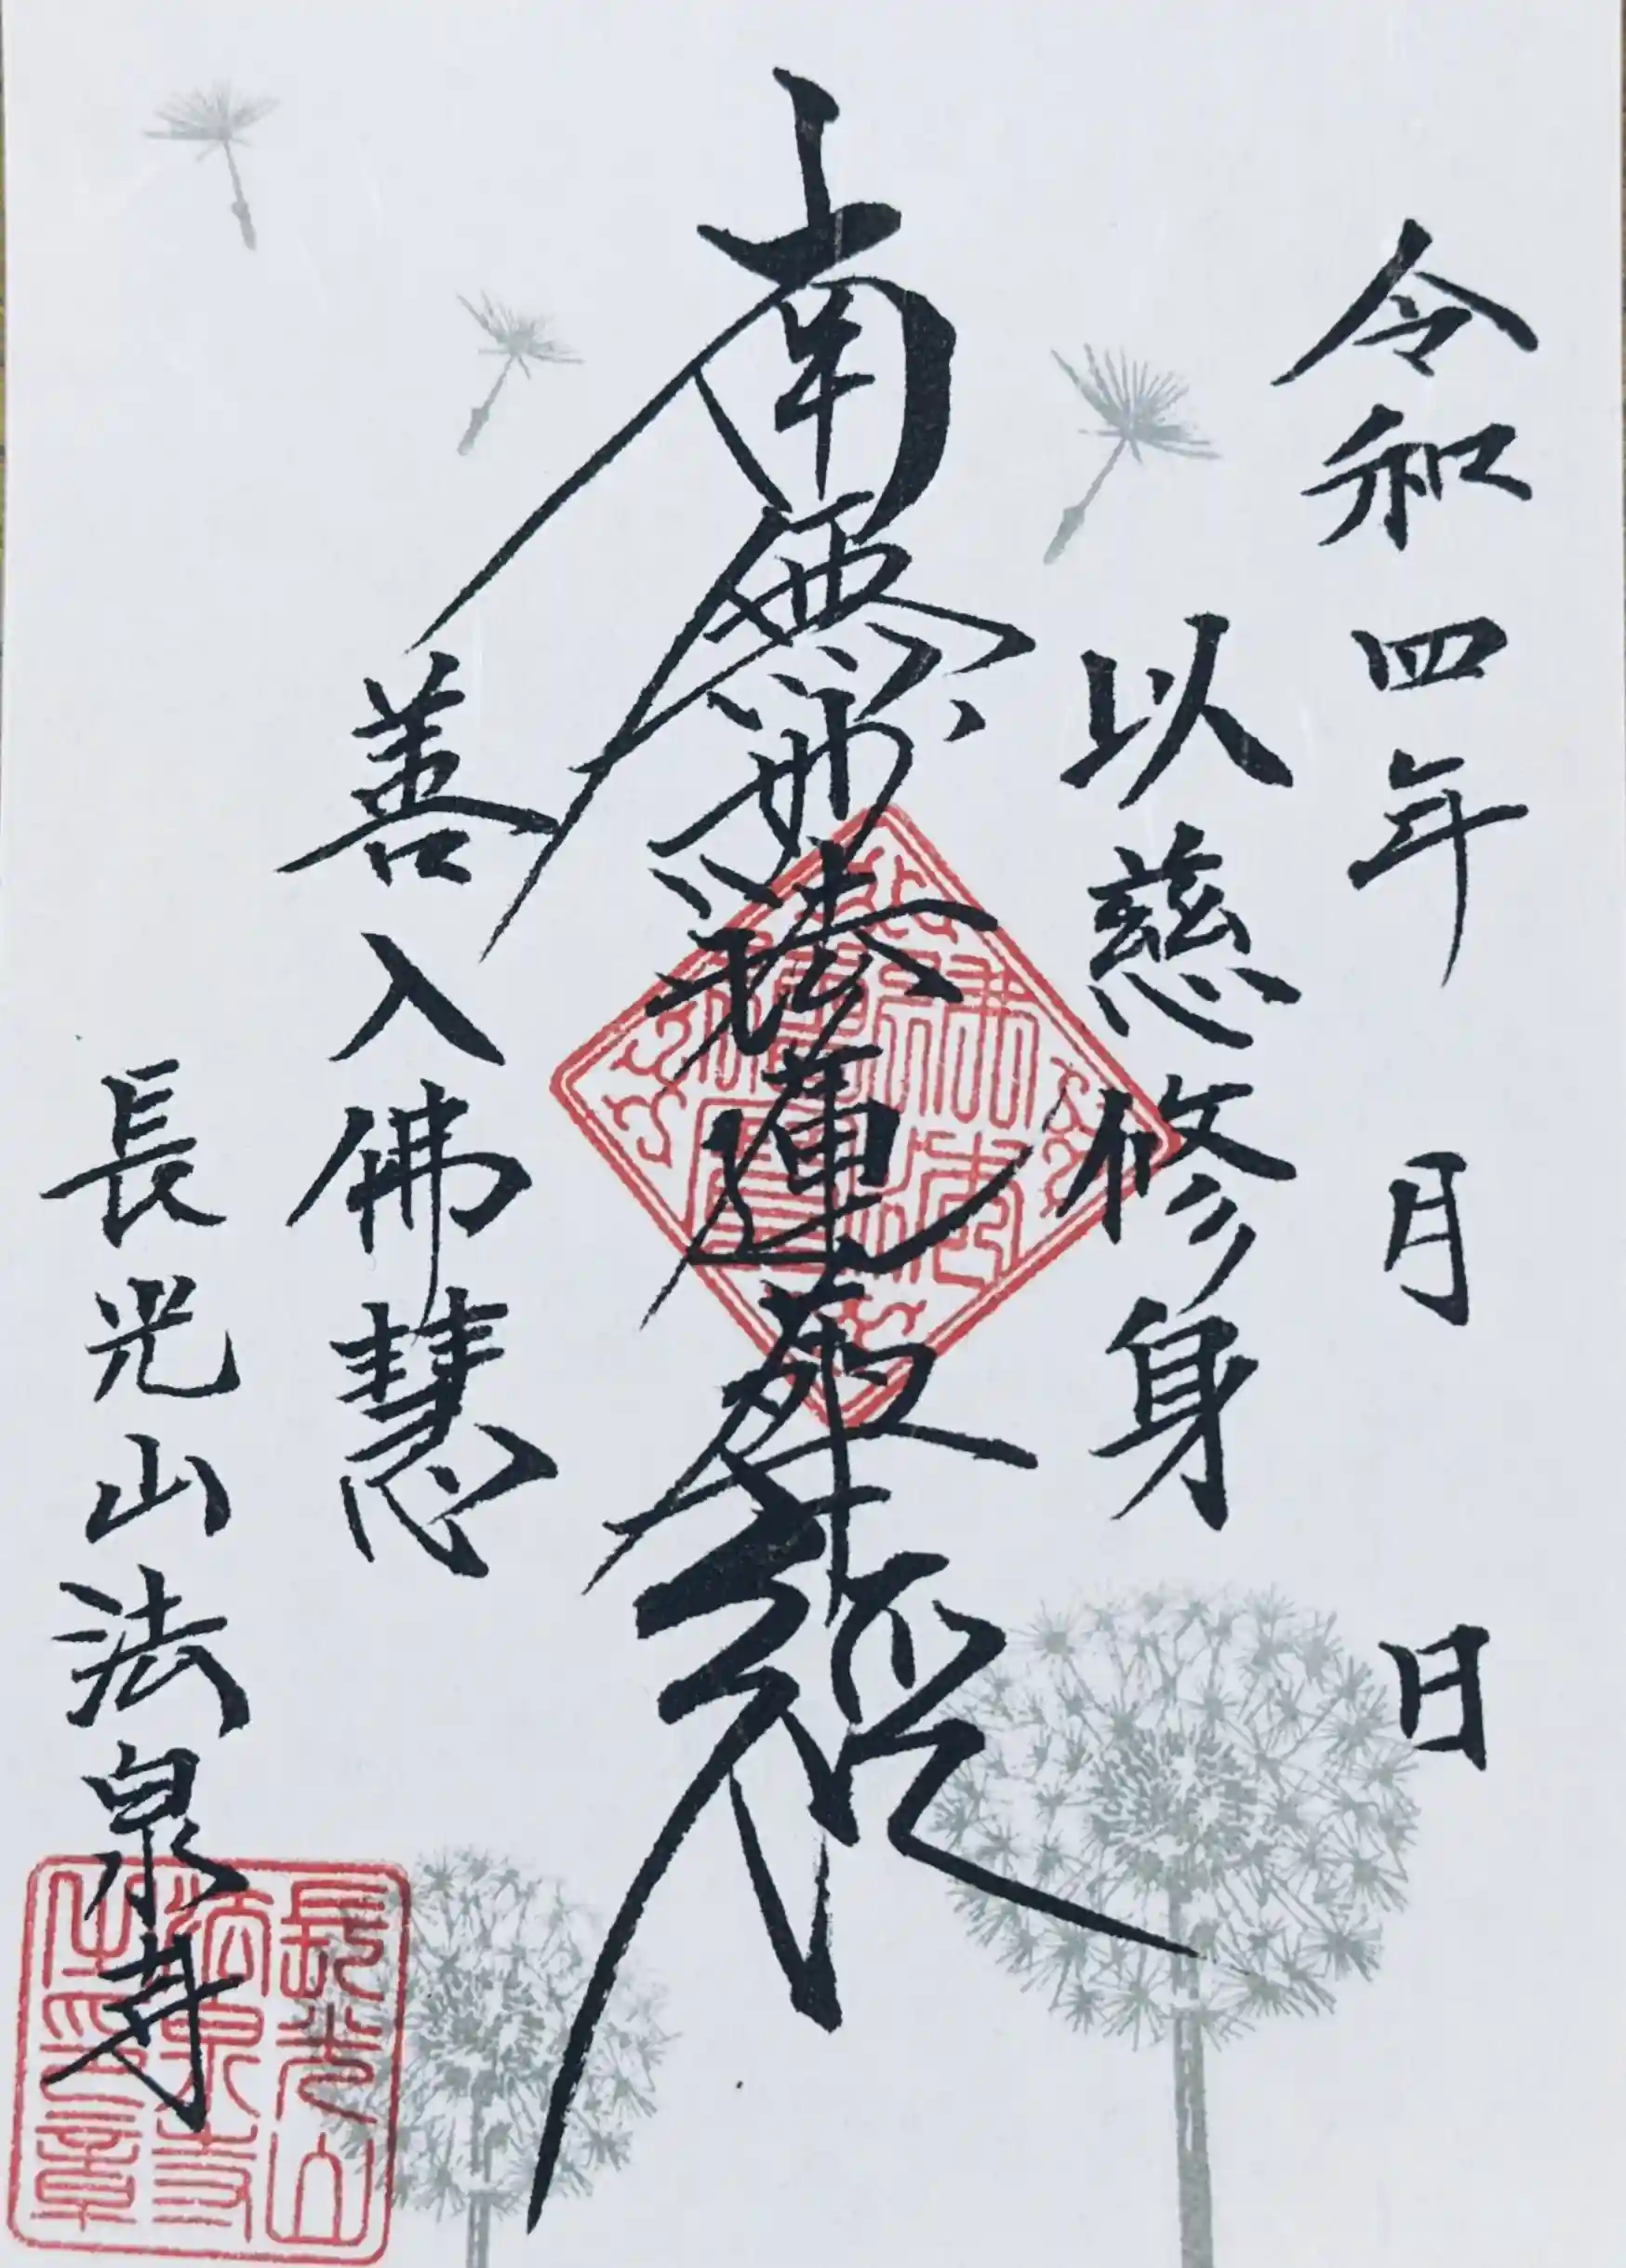 令和四年 月 日
以慈修身
南無妙法蓮華経
善入佛慧
長光山法泉寺
長光山
法泉寺
之印章